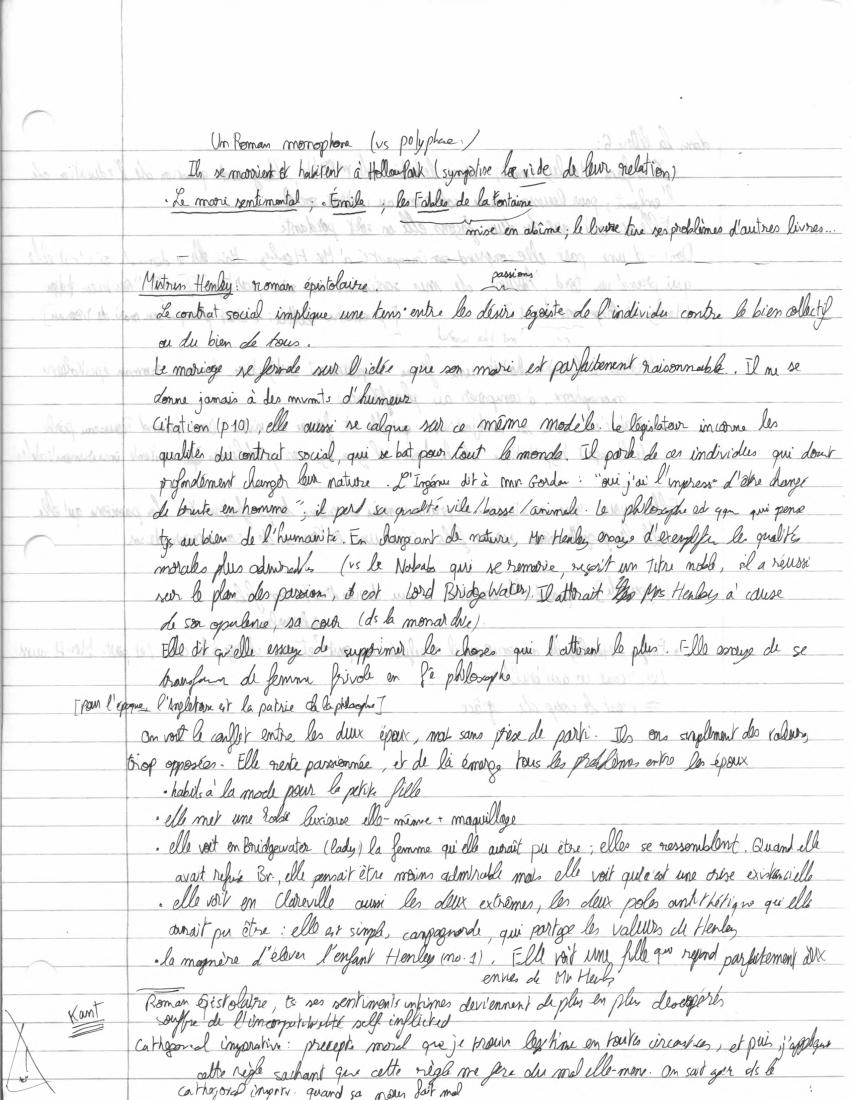 Un Roman monophone (vs polyphone)
Ils se marient et habitent à Hollowpark (sympolise le vide de leur relation)
• Le mari sentimental ; • Émile ; les Fables de la Fontaine
mise en abîme ; le livre tire ses problèmes d'autres livres...
Mistriss Henley roman épistolaire.
passions
Le contrat social implique une tens° entre les désirs égoïste de l'individu contre le bien collectif
ou du bien de tous.
Le mariage se fonde sur l'idée que son mari est parfaitement raisonnable. Il ne se
donne jamais à des mvmts d'humeur
Citation (p10), elle aussi se calque sur ce même modèle. Le législateur incarne les
qualités du contrat social, qui se bat pour tout le monde. Il parle de ces individus qui doivt
profondément changer leur nature. L'Ingénu dit à mr Gordon : "oui j'ai l'impress° d'être changé
de brute en homme" ; il perd sa qualité vile/basse/animale. Le philosophe est qqn qui pense
tjs au bien de l'humanité. En changeant de nature, Mr Henley essaye d'exemplifier les qualités
morales plus admirables (vs le Nabab qui se remarie, reçoit un titre noble, il a réussi
sur le plan des passions, il est Lord BridgeWater). Il attirait Mrs Henley à cause
de son opulence, sa cour (ds la monarchie)
Elle dit qu'elle essaye de supprimer les choses qui l'attirent le plus. Elle essaye de se
transformer de femme frivole en f^e philosophe
[pour l'époque, l'Angleterre est la patrie de la philosophie]
On voit le conflit entre les deux époux, mais sans prise de parti. Ils ons simplement des valeurs
trop opposées. Elle reste passionnée, et de là émerge tous les problèmes entre les époux
• habits à la mode pour la petite fille
• elle met une robe luxieuse elle-même + maquillage
• elle voit en Bridgewater (lady) la femme qu'elle aurait pu être ; elles se ressemblent. Quand elle
avait refusé Br., elle pensait être moins admirable mais elle voit qu'c'est une crise existencielle
• elle voit en Clareville aussi les deux extrêmes, les deux poles antithétique qu'elle
aurait pu être : elle est simple, campagnarde, qui partage les valeurs de Henley
• la magnère d'élever l'enfant Henley (no. 1). Elle voit une fille qui repond parfaitement aux
envies de Mr Henley
Roman épistolaire, ts ses sentiments intimes deviennent de plus en plus desespérés
souffre de l'imcompatibilité self inflicted
Kant
Cathegorical imperative : precepte moral que je trouve légitime en toutes circonstances, et puis j'applique
cette règle sachant que cette règle me fera du mal elle-meme. On sait agir ds le
cathegorical imperv. quand sa nous fait mal